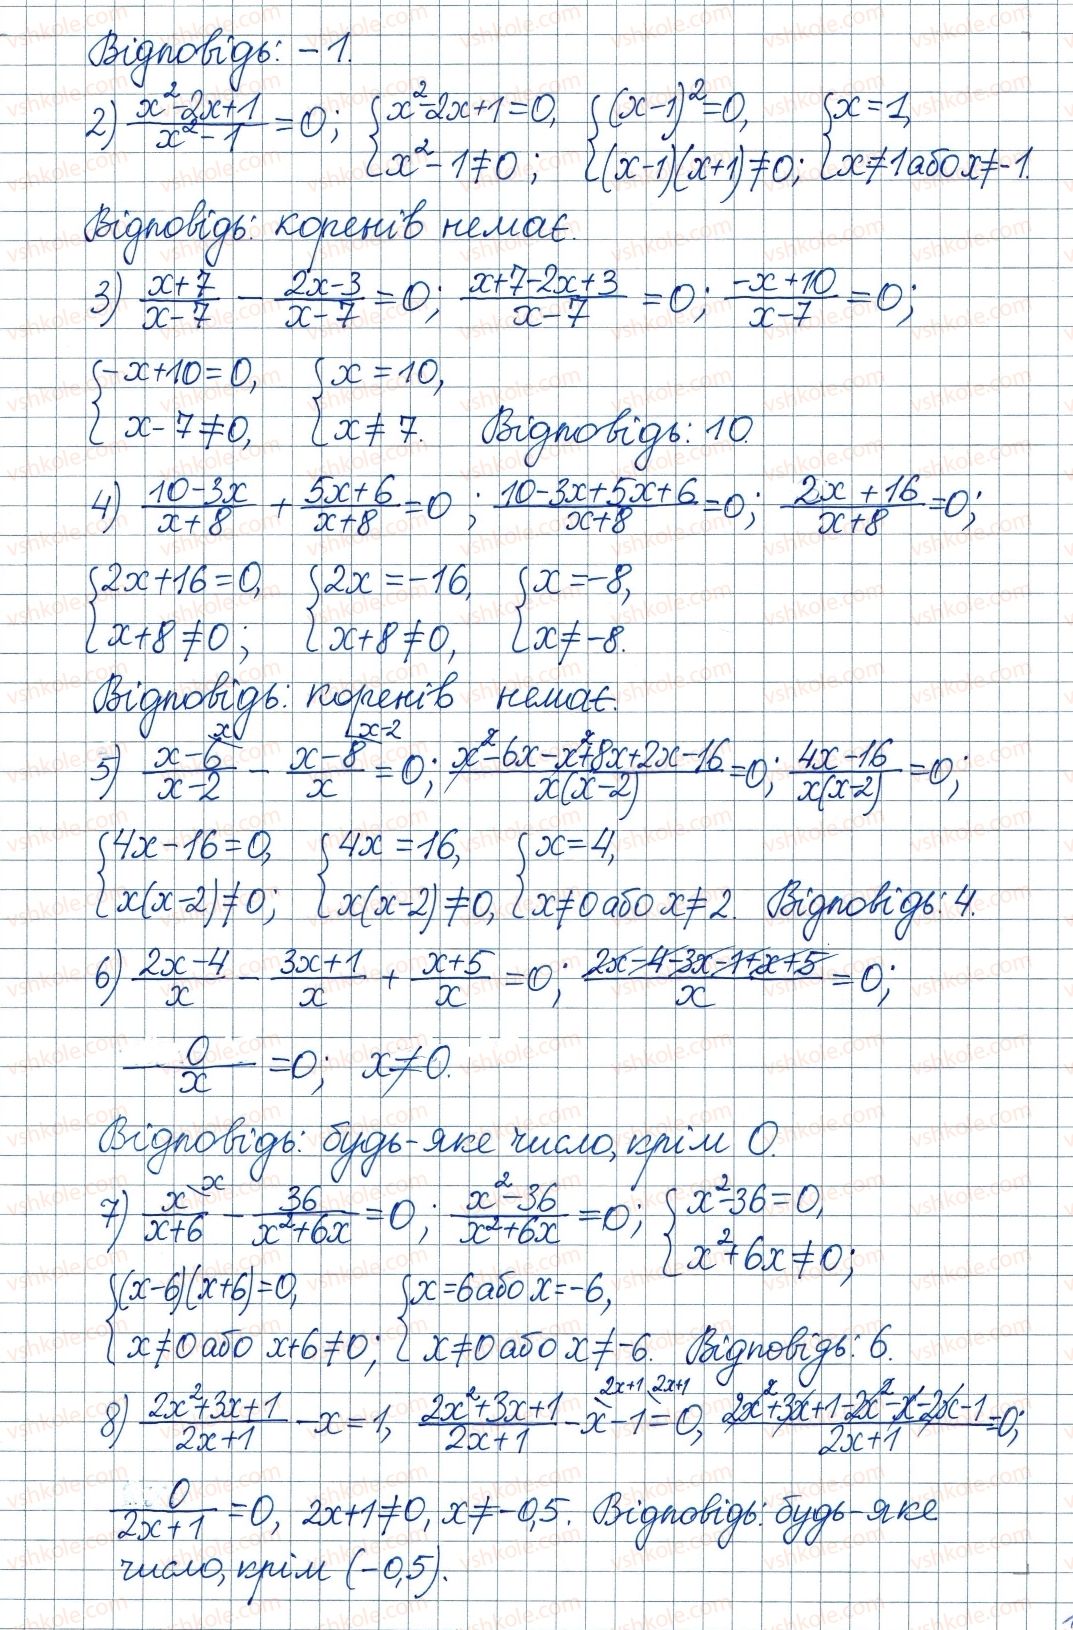 Відповідь: -1.
2) (x²-2x+1)/(x²-1) = 0; {x²-2x+1=0, x²-1≠0; {(x-1)²=0, (x-1)(x+1)≠0; {x=1, x≠1 або x≠-1.
Відповідь: коренів немає.
3) (x+7)/(x-7) - (2x-3)/(x-7) = 0; (x+7-2x+3)/(x-7) = 0; (-x+10)/(x-7) = 0;
{-x+10=0, x-7≠0, {x=10, x≠7. Відповідь: 10.
4) (10-3x)/(x+8) + (5x+6)/(x+8) = 0; (10-3x+5x+6)/(x+8) = 0; (2x+16)/(x+8) = 0;
{2x+16=0, x+8≠0; {2x=-16, x+8≠0, {x=-8, x≠-8.
Відповідь: коренів немає.
5) (x-6)/(x-2) \x - (x-8)/x \x-2 = 0; (x²-6x-x²+8x+2x-16)/(x(x-2)) = 0; (4x-16)/(x(x-2)) = 0;
{4x-16=0, x(x-2)≠0; {4x=16, x(x-2)≠0, {x=4, x≠0 або x≠2. Відповідь: 4.
6) (2x-4)/x - (3x+1)/x + (x+5)/x = 0; (2x-4-3x-1+x+5)/x = 0;
0/x = 0; x≠0.
Відповідь: будь-яке число, крім 0.
7) x/(x+6) \x - 36/(x²+6x) = 0; (x²-36)/(x²+6x) = 0; {x²-36=0, x²+6x≠0;
{(x-6)(x+6)=0, x≠0 або x+6≠0; {x=6 або x=-6, x≠0 або x≠-6. Відповідь: 6.
8) (2x²+3x+1)/(2x+1) - x = 1, (2x²+3x+1)/(2x+1) - x \2x+1 - 1 \2x+1 = 0, (2x²+3x+1-2x²-x-2x-1)/(2x+1) = 0;
0/(2x+1) = 0, 2x+1≠0, x≠-0,5. Відповідь: будь-яке
число, крім (-0,5).
vshkole.com